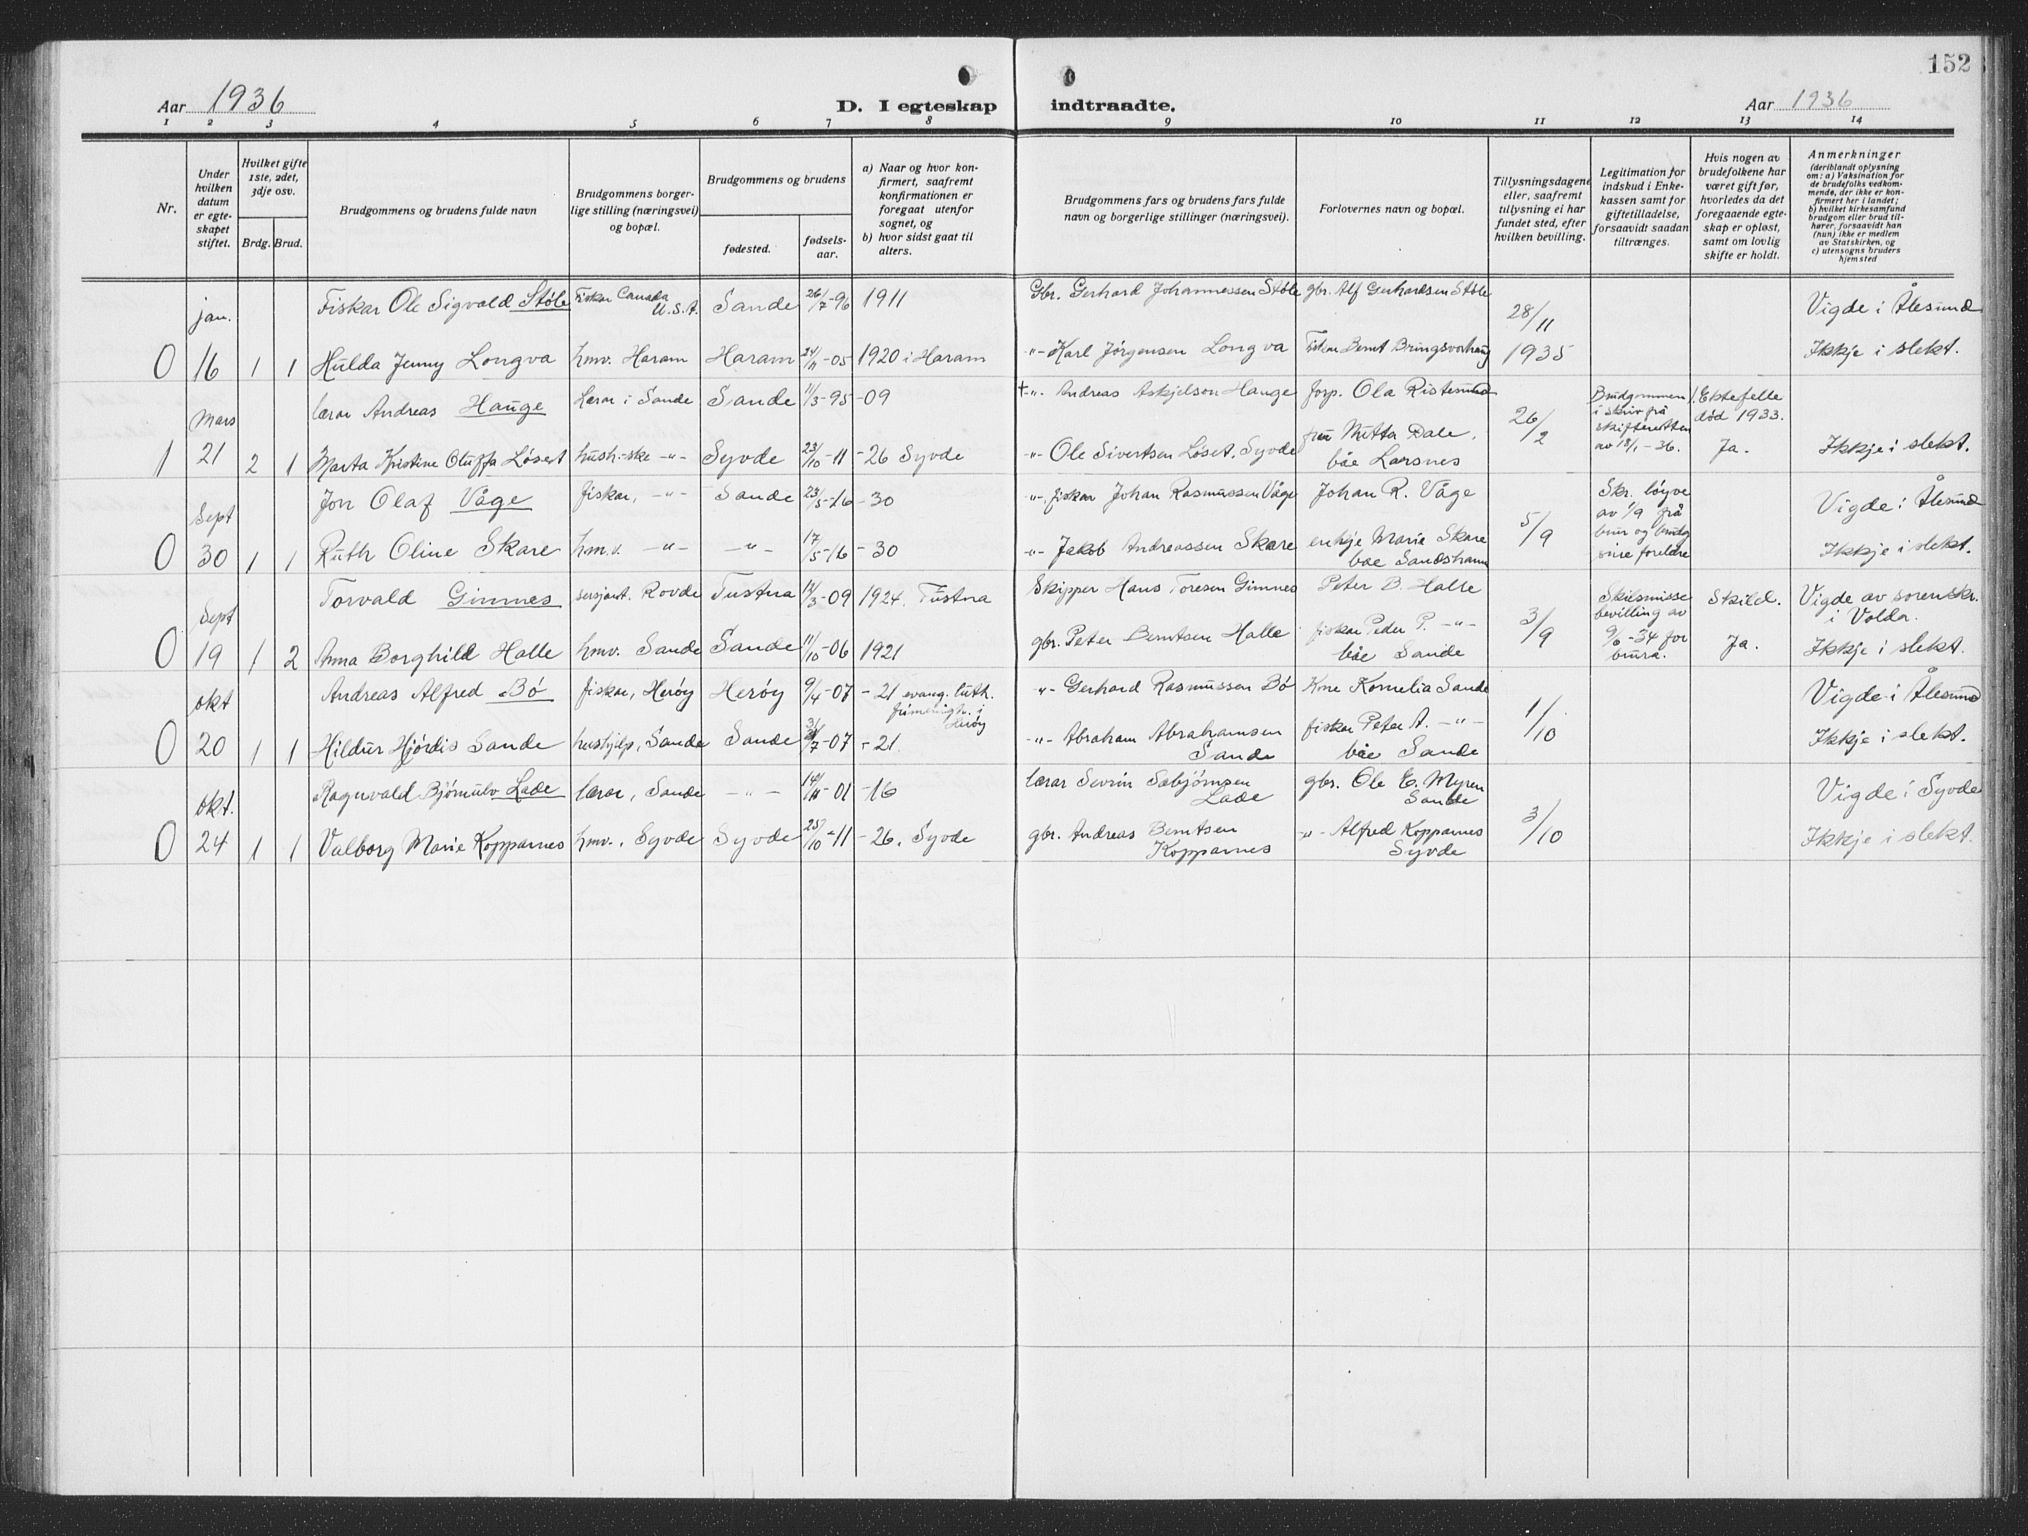 152
Aar 1936
D. I egteskap indtraadte.
Aar 1936
1 2 3 4 5 6 7 8 9 10 11 12 13 14
Nr.
Under hvilken datum er egteskapet stiftet.
Hvilket gifte 1ste, 2det, 3dje osv.
Brdg. Brud.
Brudgommens og brudens fulde navn
Brudgommens borgerlige stilling (næringsvei) og bopæl.
Brudgommens og brudens
fødested.
fødselsaar.
a) Naar og hvor konfirmert, saafremt konfirmationen er foregaat utenfor sognet, og
b) hvor sidst gaat til alters.
Brudgommens fars og brudens fars fulde navn og borgerlige stillinger (næringsvei).
Forlovernes navn og bopæl.
Tillysningsdagene eller, saafremt tillysning ei har fundet sted, efter hvilken bevilling.
Legitimation for indskud i Enkekassen samt for giftetilladelse, forsaavidt saadan tiltrænges.
Hvis nogen av brudefolkene har været gift før, hvorledes da det foregaaende egteskap er opløst, samt om lovlig skifte er holdt.
Anmerkninger
(deriblandt oplysning om: a) Vaksination for de brudefolks vedkommende, der ikke er konfirmert her i landet; b) hvilket kirkesamfund brudgom eller brud tilhører, forsaavidt han (hun) ikke er medlem av Statskirken, og c) utensogns bruders hjemsted
jan. Fiskar Ole Sigvald Støle Fiskar Canada U.S.A. Sande 26/7-96 1911 Gbr. Gerhard Johannessen Støle gbr. Alf Gerhardsen Støle 28/11 Vigde i Ålesund
0 16 1 1 Hulda Jenny Longva hmv. Haram Haram 24/11-05 1920 i Haram -"- Karl Jørgensen Longva Fiskar Bernt 1935 Ikkje i slekt.
Mars lærar Andreas Hauge Lærar i Sande Sande 11/3-95 -09 +-"- Andreas Askjelson Hauge forp. Ola Ristesund 26/2 Brudgommen i skriv frå skifteretten av 18/1-36. 1. Ektefelle død 1933.
1 21 2 1 Marta Kristine Oluffa Løset hush.-ske -"- Syvde 23/10-11 -26 Syvde -"- Ole Sivertsen Løset, Syvde fru Mitta Dale, båe Larsnes Ja. Ikkje i slekt.
Sept Jon Olaf Våge fiskar, -"- Sande 23/5-16 -30 -"-, fiskar Johan Rasmussen Våge Johan R. Våge 5/9 Skr. løyve av 1/9 frå brur og brudg sine foreldre Vigde i Ålesund
0 30 1 1 Ruth Oline Skare hmv. -"- -"- 17/5-16 -30 -"- Jakob Andreassen Skare enkje Marie Skare båe Sandshamn Ikkje i slekt.
Sept Torvald Ginnes sersjant. Rovde Tustna 12/3-09 1924. Tustna Skipper Hans Toresen Ginnes Peter B. Halle 3/9 Skilsmisse bevilling av 9/6-34 for brura. Skild. Vigde av sorenskr. i Volda.
0 19 1 2 Anna Borghild Halle hmv. Sande Sande 11/10-06 1921 gbr. Peter Berntsen Halle fiskar Peder P. -"- båe Sande Ja. Ikkje i slekt.
okt Andreas Alfred Bø fiskar, Herøy Herøy 9/4-07 -21 evang. luth. frimenigh. i Herøy -"- Gerhard Rasmussen Bø Kne Kornelia Sande 1/10 Vigde i Ålesund
0 20 1 1 Hildur Hjørdis Sande hushjelp, Sande Sande /7-07 -21 -"- Abraham Abrahamsen Sande fiskar Peter A. -"- båe Sande Ikkje i slekt.
okt. Ragnvald Bjørnulv Lade lærar, Sande -"- 14/11-01 -16 lærar Sevrin Sæbjørnsen Lade gbr. Ole E. Myren Sande 3/10 Vigde i Syvde
0 24 1 1 Valborg Marie Kopparnes hmv., Syvde Syvde 25/10-11 -26. Syvde gbr. Andreas Berntsen Kopparnes -"- Alfred Kopparnes Syvde Ikkje i slekt.